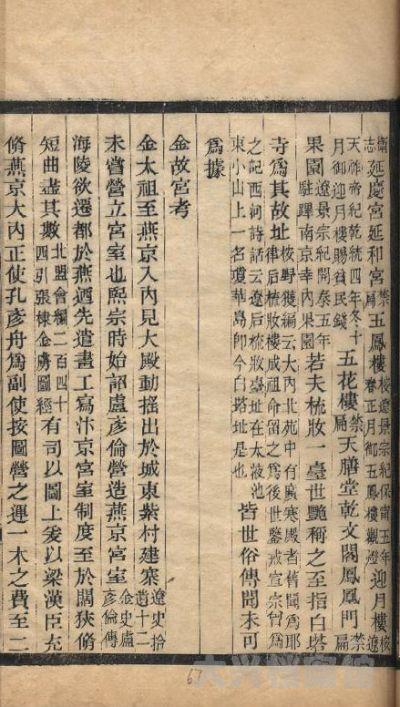 衛志延慶宮延和宮禁扁五鳳樓按遼景宗紀保甯五年春正月御五鳳樓觀燈迎月樓按遼
天祚帝紀乾統四年冬十月御迎月樓賜貧民錢五花樓禁扁天膳堂乾文閣鳳凰門禁扁
果園遼景宗紀開泰五年駐蹕南京幸內果園若夫梳妝一臺世艷稱之至指白塔
寺爲其故址按野獲編云大內北苑中有廣寒殿者舊聞爲耶律后梳妝樓成祖命留之爲後世鑒戒宣宗曾爲
之記西河詩話云遼后梳妝臺址在太液池東小山上一名瓊華島卽今白塔址是也皆世俗傳聞未可
爲據
金故宮考
金太祖至燕京入內見大殿動搖出於城東紫村建寨遼史拾遺十二
未嘗營立宮室也熙宗時始詔盧彥倫營造燕京宮室金史盧彥倫傳
海陵欲遷都於燕迺先遣畫工寫汴京宮室制度至於闊狹脩
短曲盡其數北盟會編二百四十四引張棣金虜圖經有司以圖上委以梁漢臣充
脩燕京大內正使孔彥舟爲副使按圖營之運一木之費至二